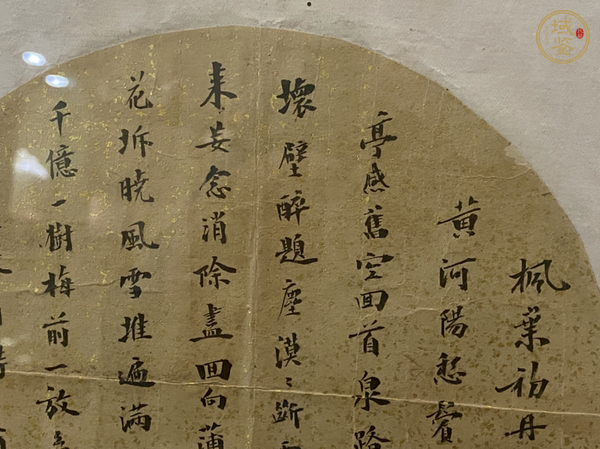 楓葉初丹
黄河陽愁鬢
亭感舊空回首泉路
壞壁醉題塵漠〻斷
来妄念消除盡回向蒲
花坼曉風雪堆遍滿
千億一樹梅前一放
域鉴